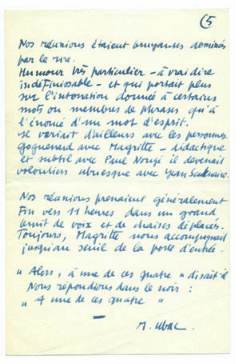 (5
Nos réunions étaient bruyantes dominées
par le rire.
Humour très particulier - à vrai dire
indéfinissable - et qui portait plus
sur l'intonation donnée à certains
mots ou membres de phrases qu'à
l'énoncé d'un mot d'esprit.
se variait d'ailleurs avec les personnes
goguenard avec Magritte - didactique
et subtil avec Paul Nougé il devenait
volontiers ubuesque avec
Nos réunions prenaient généralement
fin vers 11 heures dans un grand
bruit de voix et de chaises déplacées.
Toujours, Magritte nous accompagnait
jusqu'au seuil de la porte d'entrée.
" Alors, à une de ces quatre " disait-il
Nous répondions dans le noir :
" A une de ces quatre "
M. Ubac